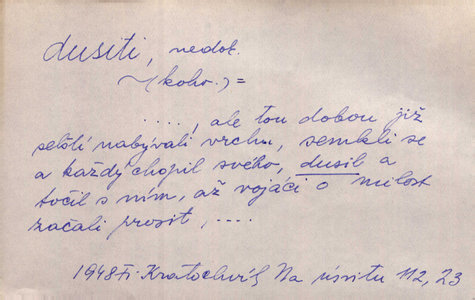 dusiti, nedok.
~ (koho.) =
...., ale tou dobou již
selští nabývali vrchu, semkli se
a každý chopil svého, dusil a
točil s ním, až vojáci o milost
začali prosit, ....
1948 Fr. Kratochvíl, Na úsvitu 112, 23